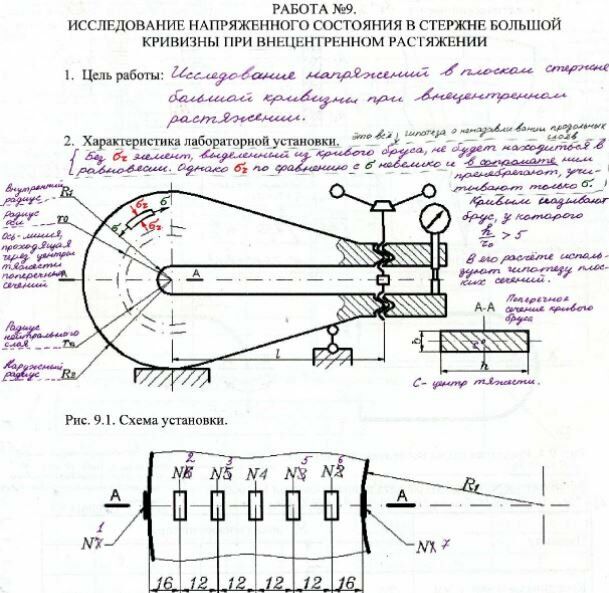 РАБОТА №9.
ИССЛЕДОВАНИЕ НАПРЯЖЕННОГО СОСТОЯНИЯ В СТЕРЖНЕ БОЛЬШОЙ
КРИВИЗНЫ ПРИ ВНЕЦЕНТРЕННОМ РАСТЯЖЕНИИ
1. Цель работы: Исследование напряжений в плоском стержне
большой кривизны при внецентренном
растяжении.
2. Характеристика лабораторной установки.
это всё, гипотеза о ненадавливании продольных
слоев
Без σr элемент, выделенный из кривого бруса, не будет находиться в
равновесии. Однако σr по сравнению с σ невелико и в сопромате ним
пренебрегают, учи-
тывают только σ.
Внутренний
радиус
R1
Радиус
оси
r0
Ось-линия,
проходящая
через центры
тяжести
поперечных
сечений
Радиус
нейтрального
слоя
rн
Наружный
радиус
R2
σ
σr
σr
σ
A
A
l
Кривым называют
брус, у которого
h/r0 > 5
В его расчёте исполь-
зуют гипотезу плос-
ких сечений.
A-A
Поперечное
сечение кривого
бруса
b
c
h
C- центр тяжести.
Рис. 9.1. Схема установки.
2
3
5
6
N6
N5
N4
N3
N2
A
A
R1
1
N7
N1 7
16
12
12
12
12
16